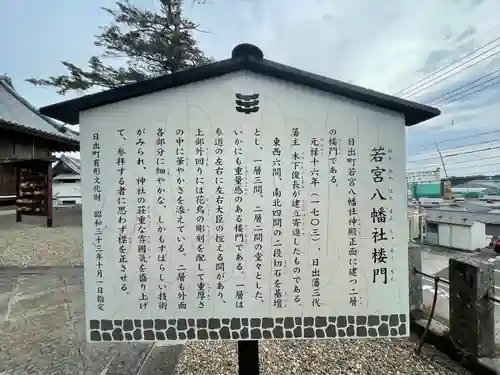 若宮八幡社楼門
わかみやはちまんしゃろうもん
日出町若宮八幡社神殿正面に建つ二層
の楼門である。
元禄十六年(一七〇三)、日出藩三代
藩主 木下俊長が建立寄進したものである。
東西六間、南北四間の二段切石を基壇
とし、一層三間、二層二間の堂々とした、
いかにも重量感のある楼門である。一層は
参道の左右に左右大臣の控える間があり、
上部外回りには花鳥の彫刻を配して重厚さ
の中に華やかさを添えている。二層も外面
各部分に細やかな、しかもすばらしい技術
がみられ、神社の荘重な雰囲気を盛り上げ
て、参拝する者に思わず襟を正させる。
日出町有形文化財 昭和三十三年十月一日指定